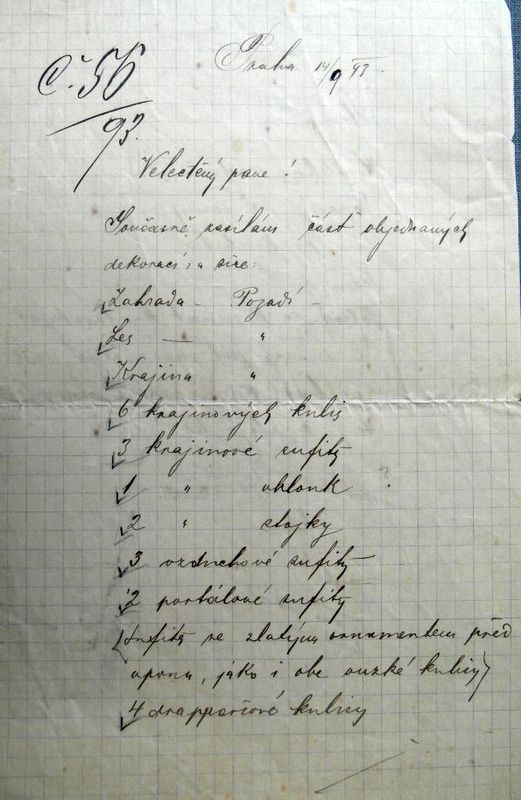 Č. 56
93.
Praha 14/9 93.
Velectěný pane!
Současně zasílám část objednaných
dekorací a sice:
Zahrada – Pozadí –
Les — "
Krajina "
6 krajinových kulis
3 krajinové sufity
1 " oblouk ?
2 " stojky
3 vzduchové sufity
2 portálové sufity
(Sufity se zlatým ornamentem před
oponu, jako i obe ouzké kulisy)
4 drapperiové kulisy